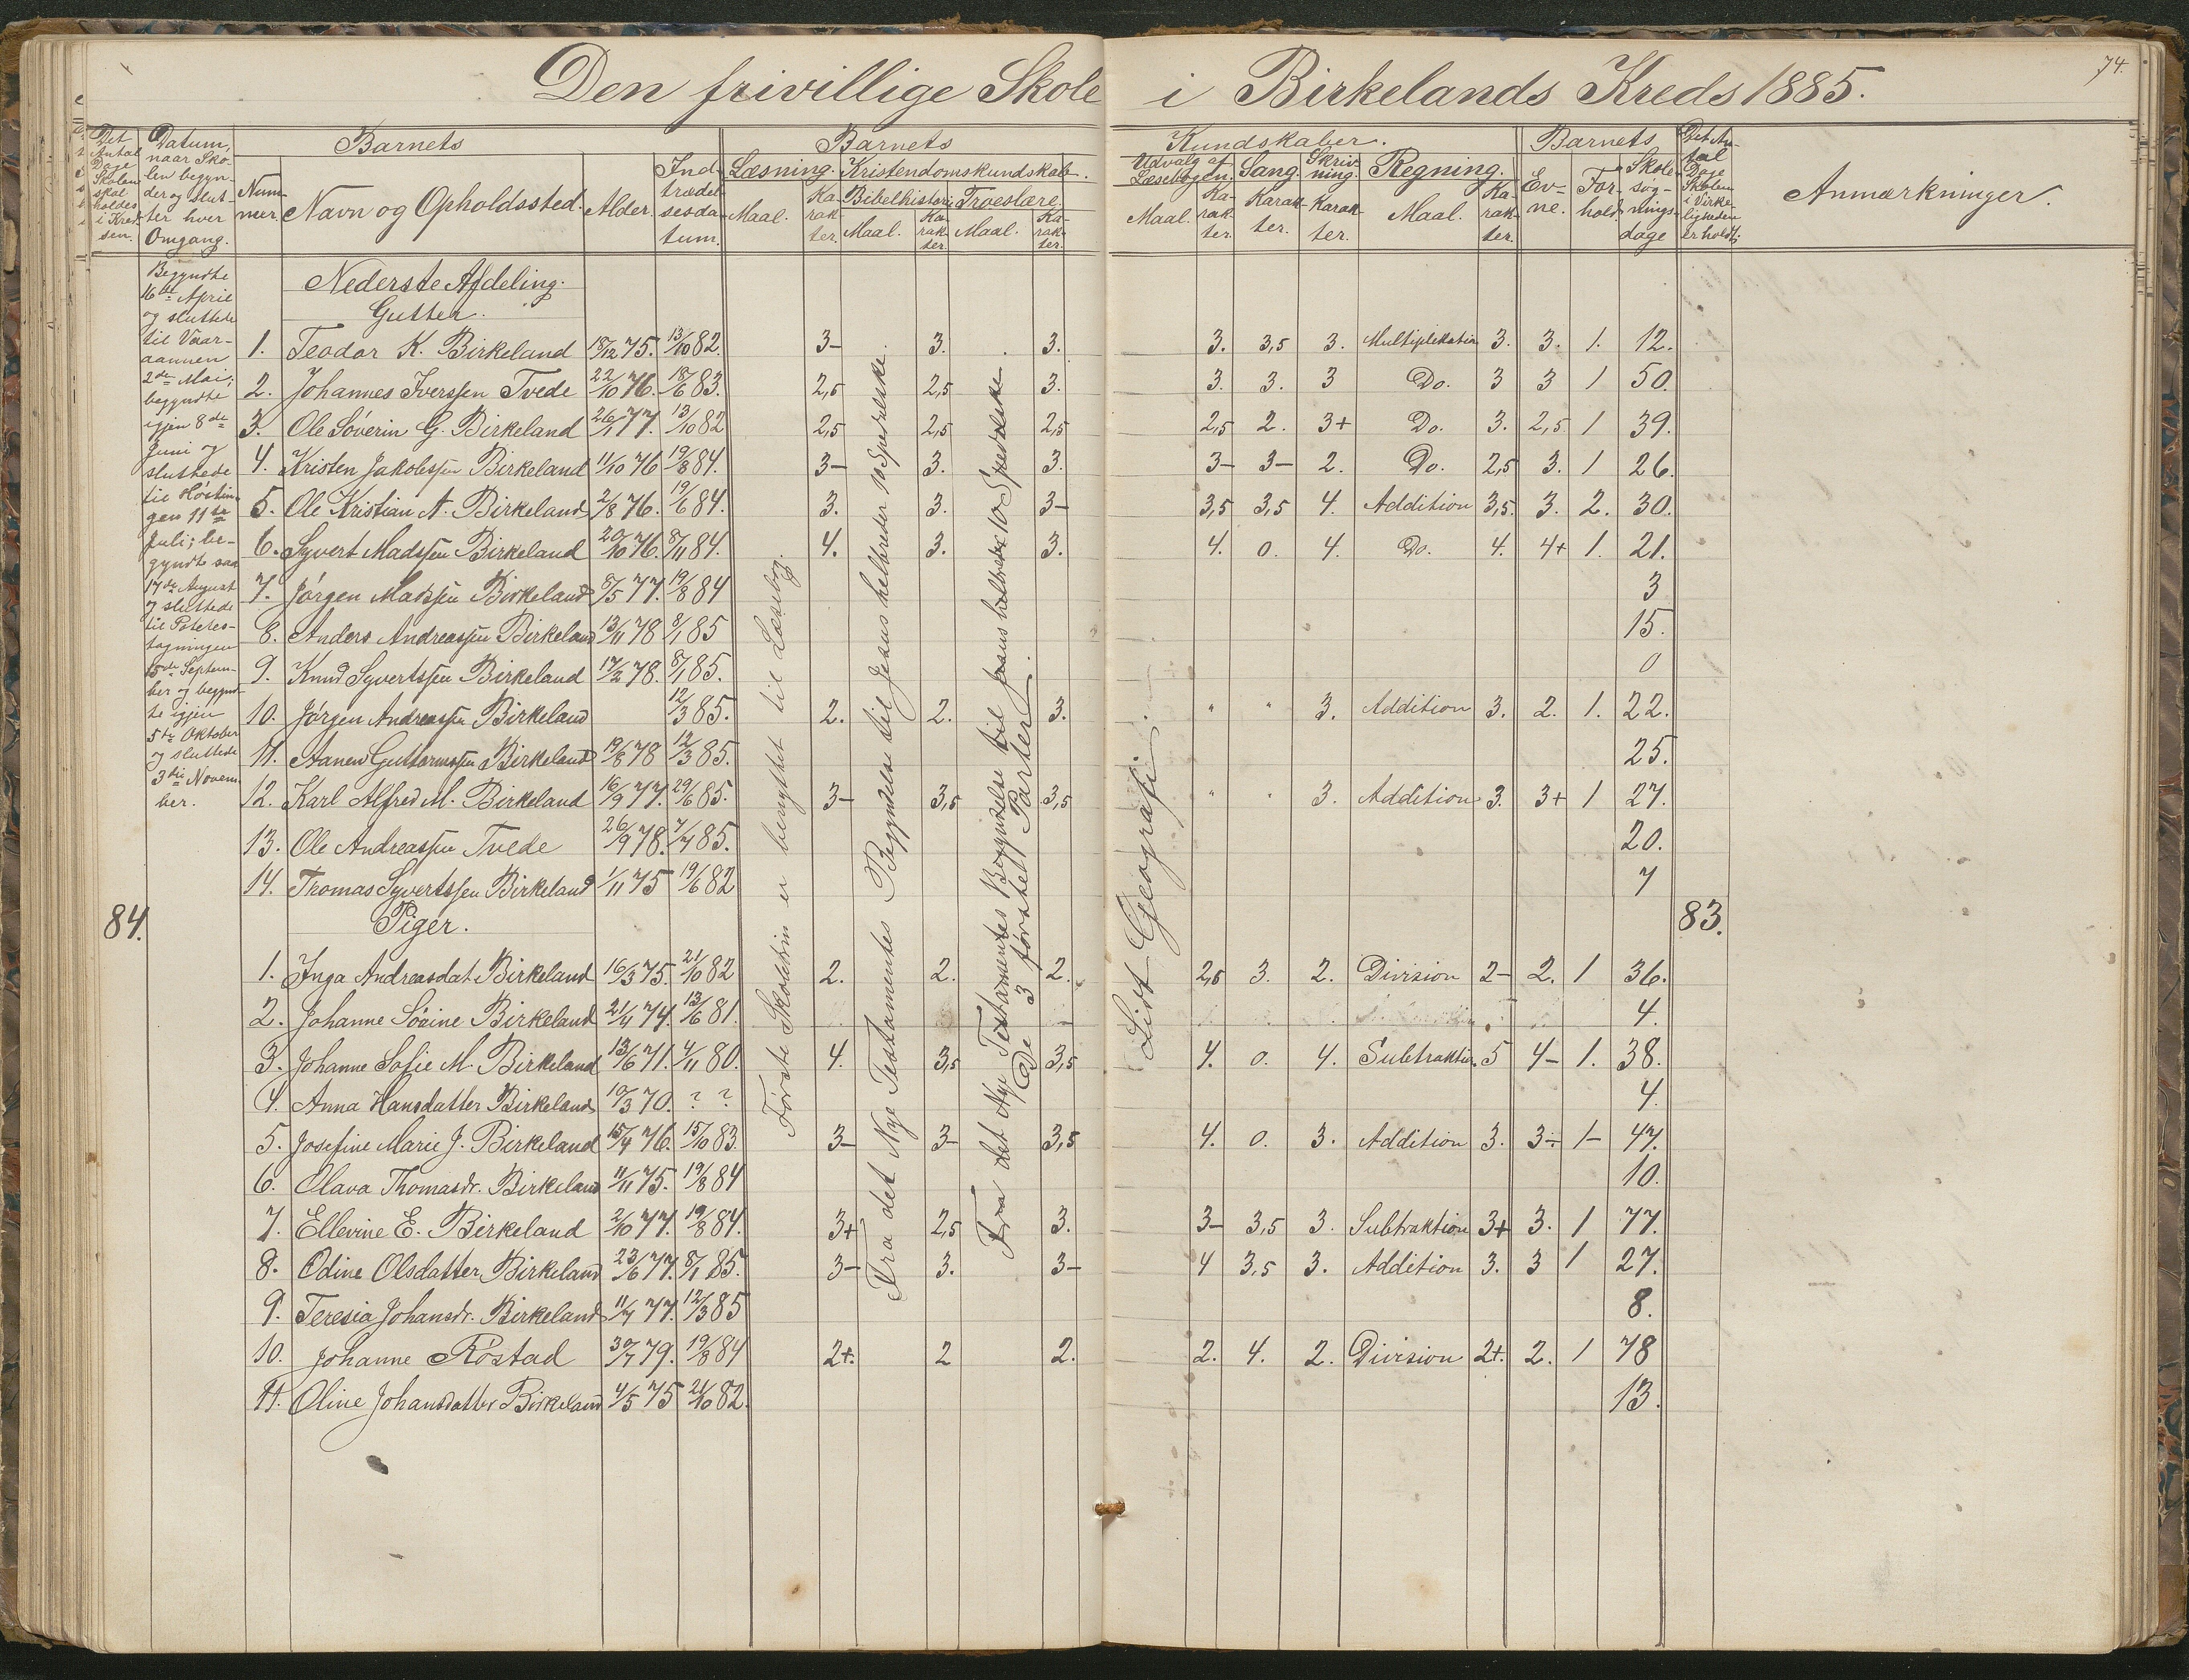 74.
Den frivillige Skole i Birkelands Kreds 1885.
Det Antal Dage Skolen skal holdes i Kredsen.
Datum, naar Skolen begynder og slutter hver Omgang.
Barnets
Nummer. Navn og Opholdssted. Alder. Indtrædelsesdatum.
Barnets Kundskaber.
Læsning. Maal. Karakter.
Kristendomskundskab.
Bibelhistorie Maal. Karakter.
Troeslære. Maal. Karakter.
Udvalg af Læsebogen. Maal. Karakter.
Sang. Karakter.
Skrivning. Karakter.
Regning. Maal. Karakter.
Barnets
Evne. Forhold. Skolesøgningsdage
Det Antal Dage Skolen i Virkeligheden er holdt
Anmærkninger.
Begyndte
16de April
og sluttede
til Vaar-
aannen
2den Mai;
begyndte
igjen 8de
Juni og
sluttede
til Høstin-
gen 11te
Juli; be-
gyndte saa
17de August
og sluttede
til Potetes-
tagningen
15de Septem-
ber og begynd-
te igjen
5te Oktober
og sluttede
3die Novem-
ber.
84.
Nederste Afdeling.
Gutter.
1. Teodor K. Birkeland 18/12 75. 13/10 82. 3- 3. 3. 3. 3,5 3. Multiplikation 3. 3. 1. 12.
2. Johannes Iverssen Tvede 22/10 76. 18/6 83. 2,5 2,5 3. 3. 3. 3 Do. 3 3 1 50.
3. Ole Søverin G. Birkeland 26/1 77. 13/10 82 2,5 2,5 2,5 2,5 2. 3+ Do. 3. 2,5. 1 39.
4. Kristen Jakobssen Birkeland 11/10 76 19/8 84. 3- 3. 3. 3- 3- 2. Do. 2,5 3. 1 26.
5. Ole Kristian A. Birkeland 2/8 76. 19/6 84. 3. 3. 3- 3,5 3,5 4. Addition 3,5. 3. 2. 30.
6. Syvert Madssen Birkeland 20/10 76. 8/11 84. 4. 3. 3. 4. 0. 4. Do. 4. 4+ 1. 21.
7. Jørgen Madssen Birkeland 8/5 77. 19/8 84 3
8. Anders Andreassen Birkeland 13/11 78 8/1 85 15.
9. Knud Syvertssen Birkeland 17/2 78. 8/1 85. 0
10. Jørgen Andreassen Birkeland 12/3 85. 2. 2. 3. " " 3. Addition 3. 2. 1. 22.
11. Aanen Guttormssen Birkeland 19/8 78 12/3 85. 25.
12. Karl Alfred M. Birkeland 16/9 77. 29/6 85. 3- 3,5 3,5 " " 3. Addition 3. 3+ 1 27.
13. Ole Andreassen Tvede 26/9 78. 7/7 85. 20.
14. Thomas Syvertssen Birkeland 1/11 75 19/6 82 7
Piger.
83.
1. Inga Andreasdat. Birkeland 16/3 75. 21/10 82 2. 2. 2. 2,5 3. 2. Division 2- 2. 1 36.
2. Johanne Sørine Birkeland 21/4 74. 13/6 81. 4.
3. Johanne Sofie M. Birkeland 13/6 71. 4/11 80. 4. 3,5 3,5 4. 0. 4. Subtraktion. 5 4- 1. 38.
4. Anna Hansdatter Birkeland 10/3 70. ? ? 4.
5. Josefine Marie J. Birkeland 15/4 76. 15/10 83. 3- 3- 3,5 4. 0. 3. Addition 3. 3- 1- 47.
6. Olava Thomasdr. Birkeland 11/11 75. 19/8 84 10.
7. Ellevine E. Birkeland 2/10 77. 19/8 84. 3+ 2,5 3. 3- 3,5 3. Subtraktion 3+ 3. 1 77.
8. Odine Olsdatter Birkeland 23/6 77. 8/1 85. 3- 3. 3- 4 3,5 3. Addition 3. 3 1 27.
9. Teresia Johansdr. Birkeland 11/7 77. 12/3 85 8.
10. Johanne Røstad 30/7 79. 19/8 84 2+. 2 2. 2. 4. 2. Division 2+. 2. 1 78
11. Oline Johansdatter Birkeland 4/5 75 21/10 82. 13.
Første Skoletrin er benyttet til Læsebog
Fra det Nye Testamentes Begyndelse til Jesus helbreder 10 Spedalske.
Fra det Nye Testamentes Begyndelse til Jesus helbreder 10 Spedalske.
(De 3 første Parter).
Lidt Geografi.